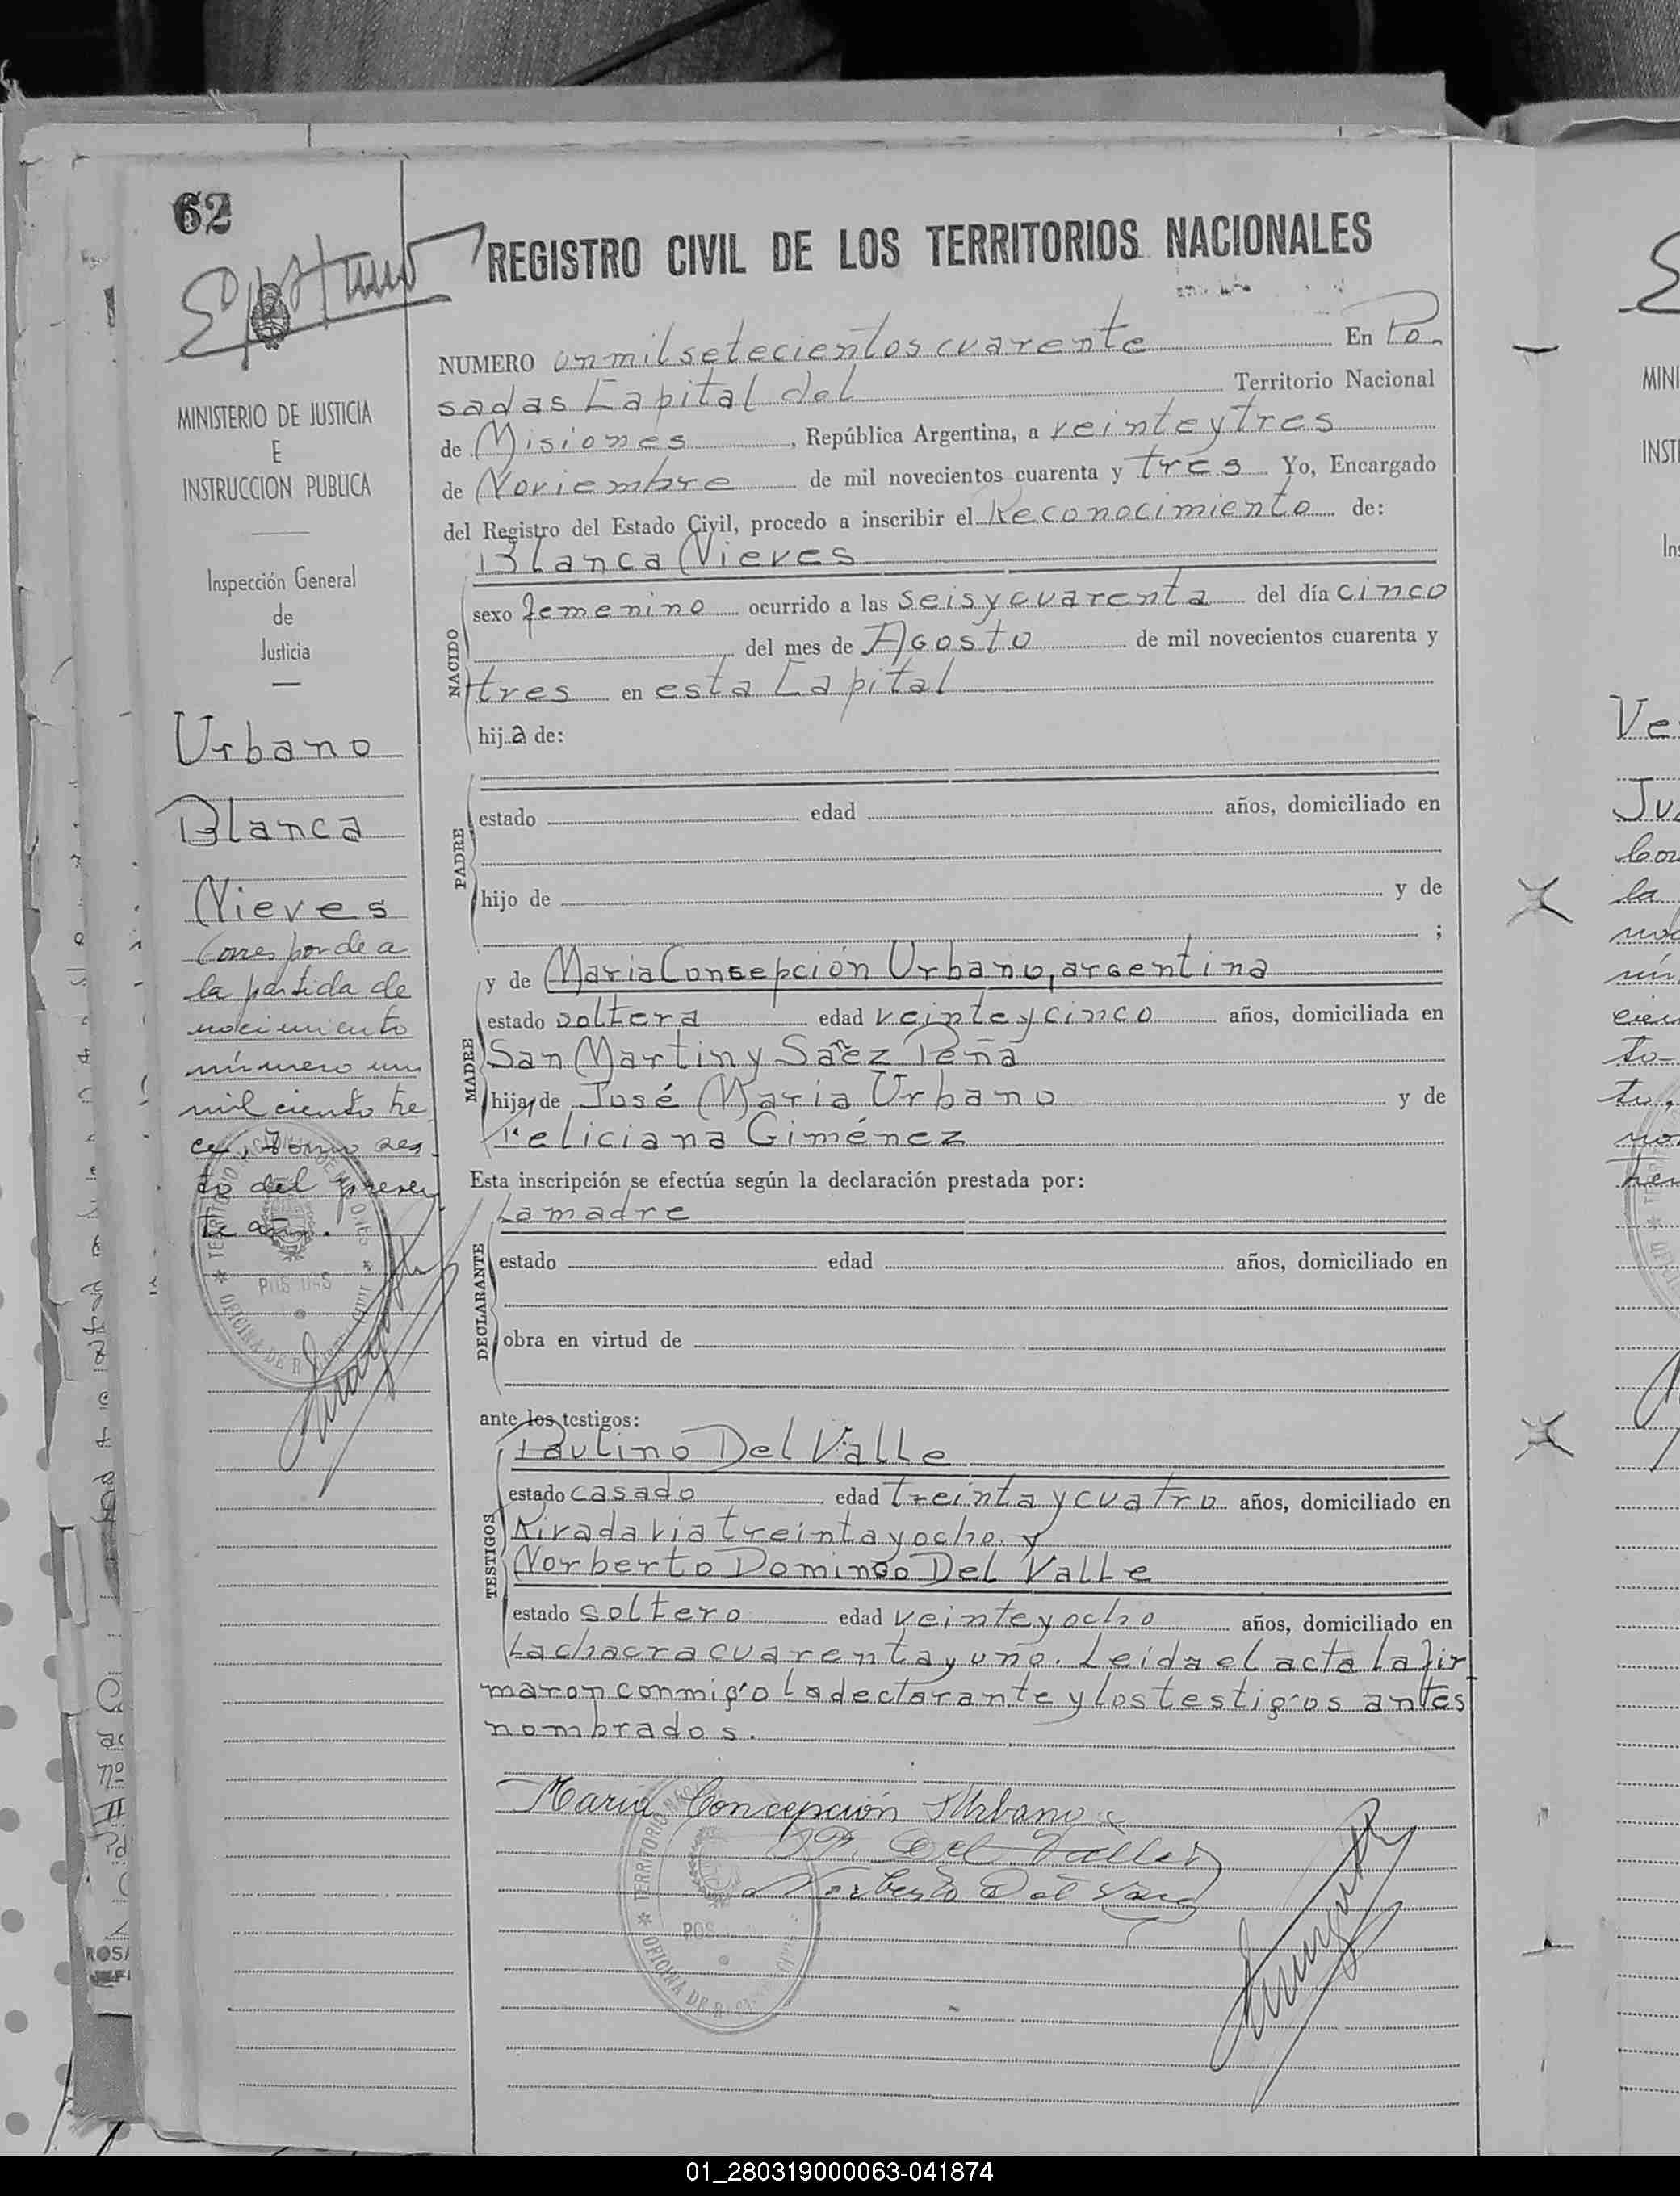 62
REGISTRO CIVIL DE LOS TERRITORIOS NACIONALES
NUMERO un mil setecientos cuarente En Po-
sadas Capital del Territorio Nacional
de Misiones, República Argentina, a veinte y tres
de Noviembre de mil novecientos cuarenta y tres Yo, Encargado
del Registro del Estado Civil, procedo a inscribir el Reconocimiento de:
Blanca Nieves
NACIDO
sexo femenino ocurrido a las seis y cuarenta del día cinco
del mes de Agosto de mil novecientos cuarenta y
tres en esta Capital
hija de:
PADRE
estado edad años, domiciliado en
hijo de y de
;
y de Maria Consepción Urbano, argentina
MADRE
estado soltera edad veinte y cinco años, domiciliada en
San Martin y Sáez Peña
hija de José Maria Urbano y de
Feliciana Giménez
Esta inscripción se efectúa según la declaración prestada por:
La madre
DECLARANTE
estado edad años, domiciliado en
obra en virtud de
ante los testigos:
Paulino Del Valle
TESTIGOS
estado casado edad treinta y cuatro años, domiciliado en
Rivadavia treinta y ocho. y
Norberto Domingo Del Valle
estado soltero edad veinte y ocho años, domiciliado en
La chacra cuarenta y uno. Leida el acta la fir
maron conmigo la declarante y los testigos antes
nombrados.
Maria Concepción Urbano
P. Del Valle
Norberto Del Valle
TERRITORIO
POS
OFICINA DE R
MINISTERIO DE JUSTICIA
E
INSTRUCCION PUBLICA
Inspección General
de
Justicia
Urbano
Blanca
Nieves
Corresponde a
la partida de
nacimiento
número un
mil ciento tre
ce, tomo sex
to del presen
te año.
TERRITORIO NACIONAL DE MISIONES
POSADAS
OFICINA DE REGISTRO CIVIL
MINI
INSTI
Ins
Ve
la
ROSA
JEF
01_280319000063-041874